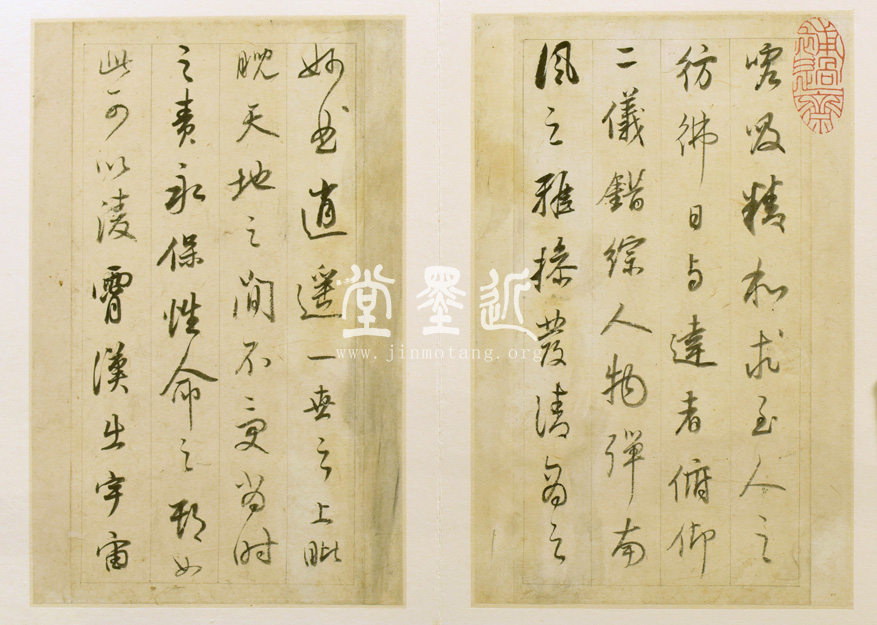 補過齋
吸精和求至人之
彷彿日與達者俯仰
二儀錯綜人物彈南
風之雅操發清商之
妙曲逍遥一世之上睥
睨天地之間不受當時
之責永保性命之期如
此可以凌霄漢出宇宙
近墨堂
www.jinmotang.org